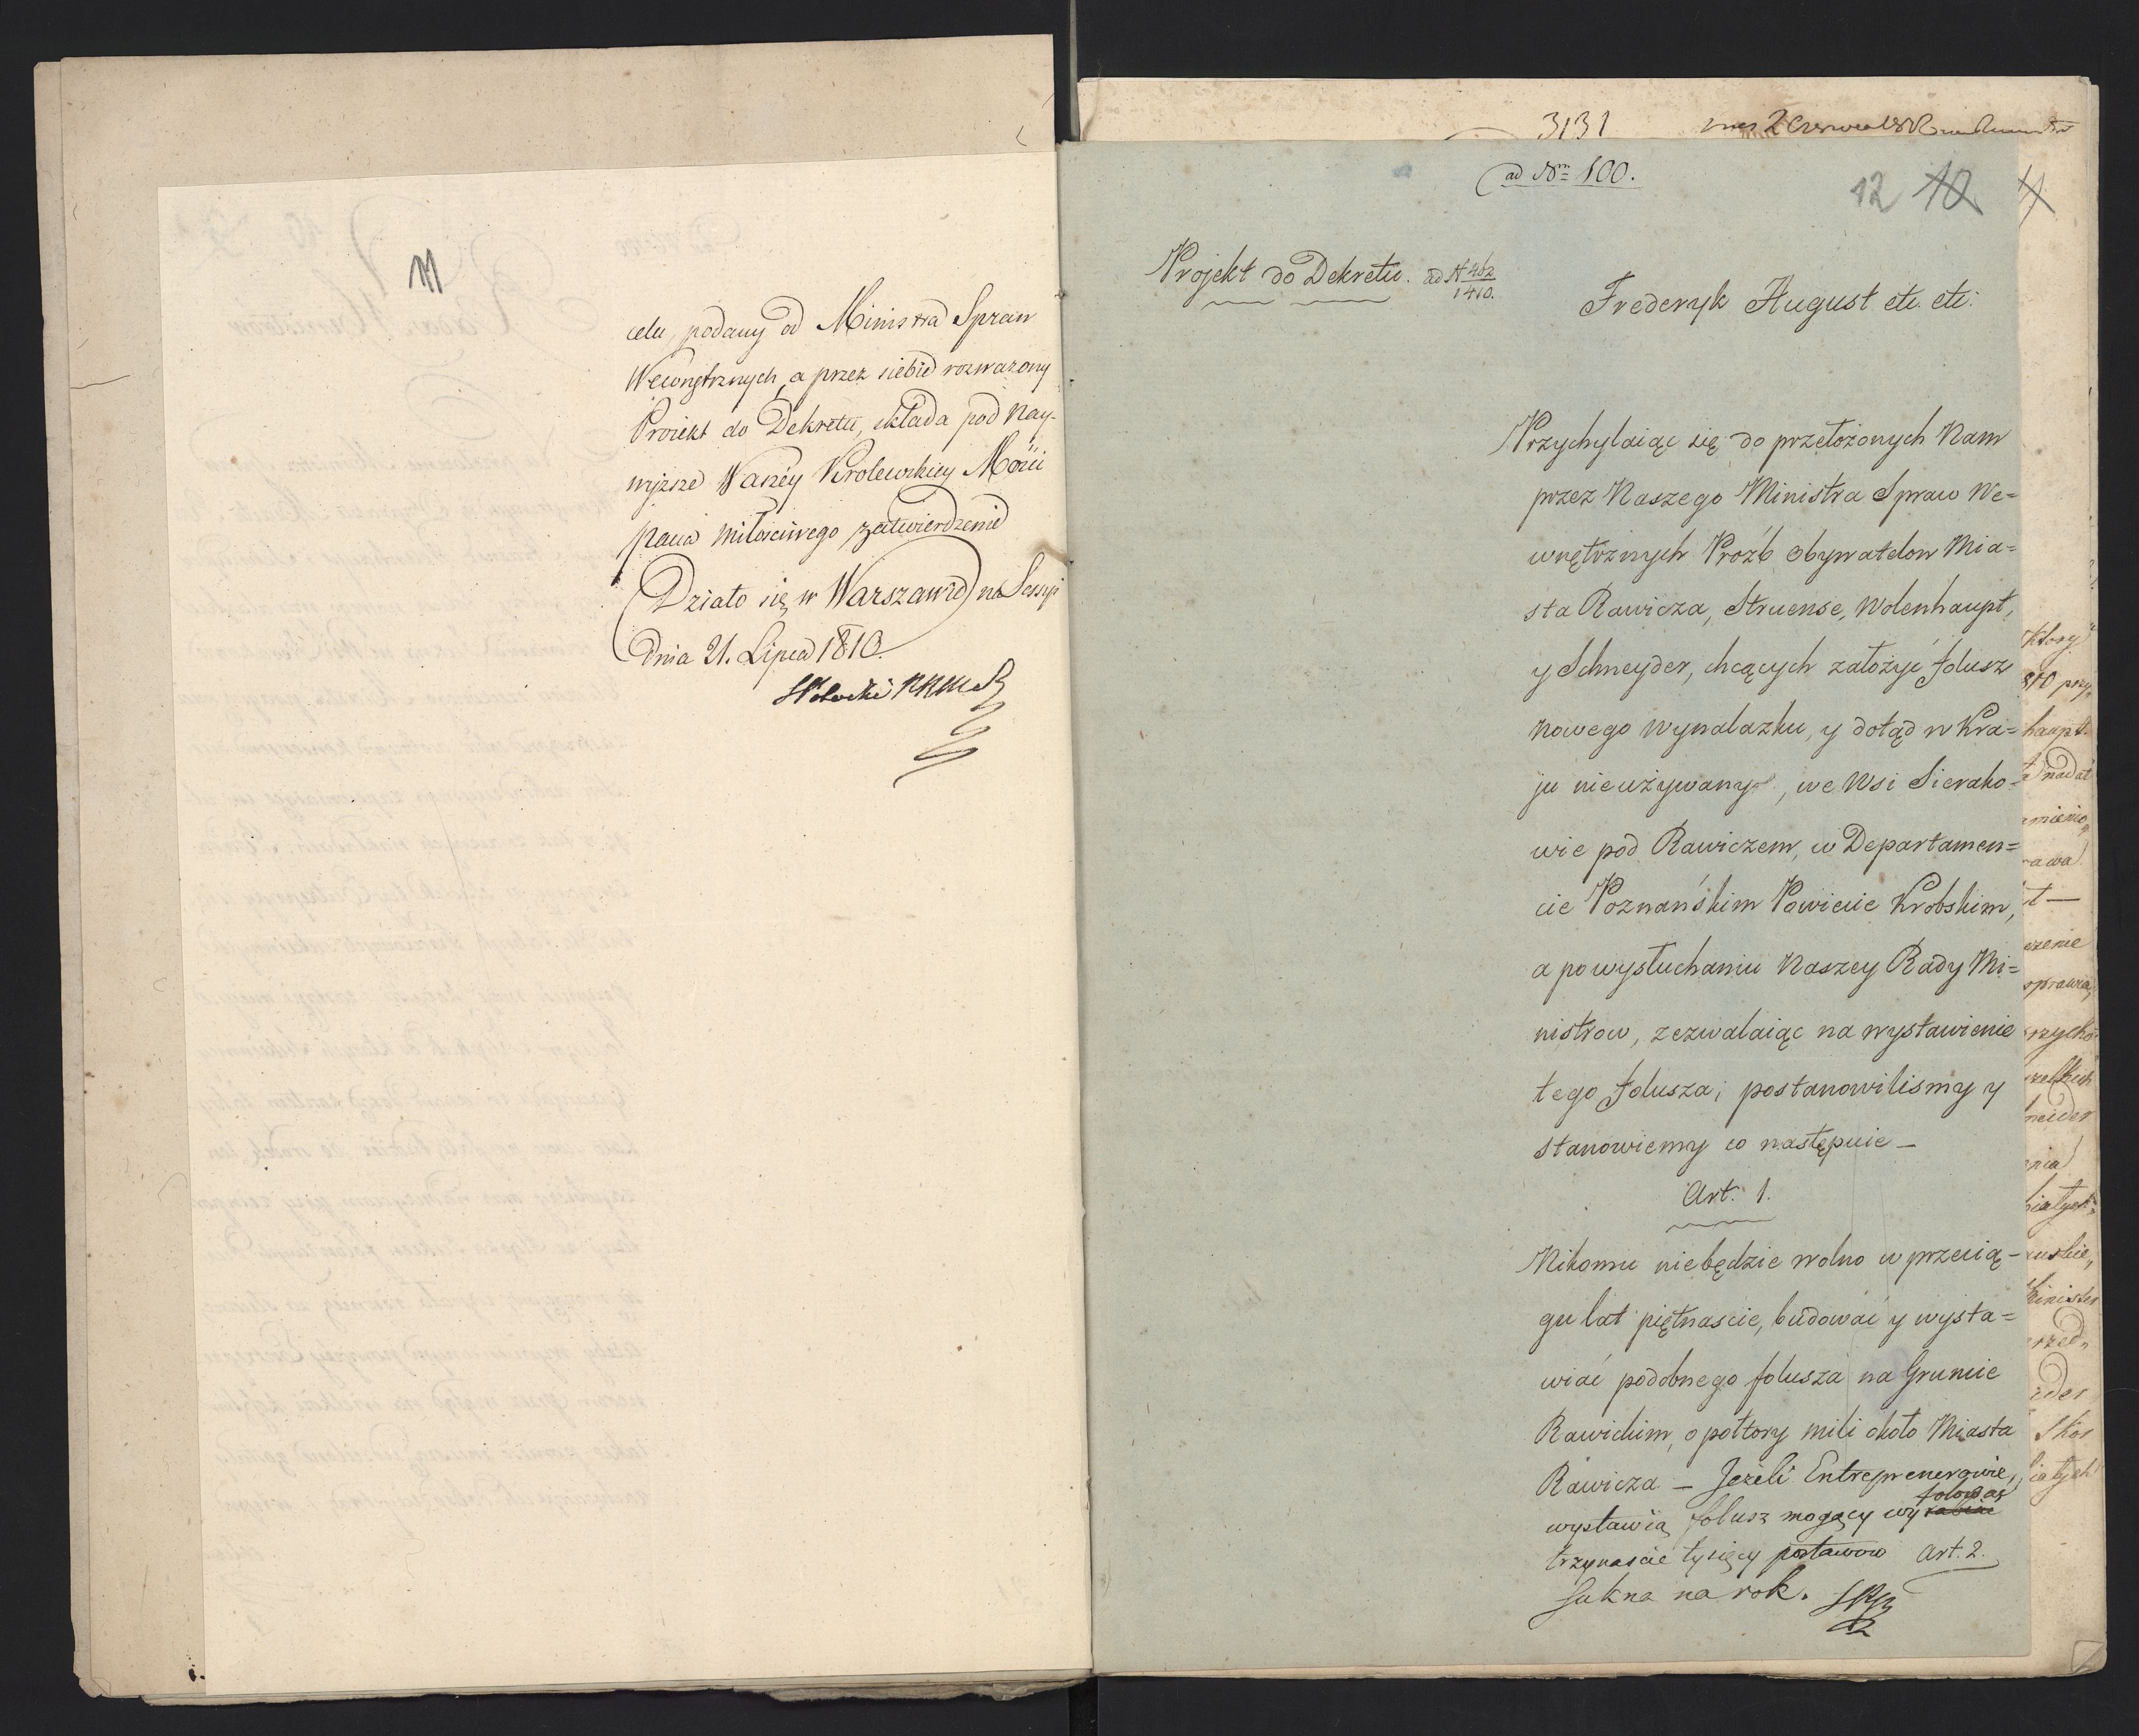 11
celu, podany od Ministra Spraw
Wewnętrznych, a przez siebie rozwazony
Proiekt do Dekretu, składa pod Nay-
wyższe Waszéy Krolewskiey Mości
pana Miłościwego zatwierdzenie
Działo się w Warszawie na Sessyi
dnia 21. Lipca 1810.
3131
2 Czerwca
ad Nm 100.
12 10
Projekt do Dekretu. ad N 462/1410.
Frederyk August etc. etc:
Przychylaiąc się do przełożonych Nam
przez Naszego Ministra Spraw We=
wnętrznych Prozb Obywatelow Mia=
sta Rawicza, Struense, Wolenhaupt,
y Schneyder, chcących założyć folusz
nowego wynalazku, y dotąd w Kra=
ju nieużywany, we Wsi Sierako=
wie pod Rawiczem, w Departamen=
cie Poznańskim Powiecie Krobskim,
a po wysłuchaniu Naszey Rady Mi=
nistrow, zezwalaiąc na wystawienie
tego folusza; postanowilismy y
stanowiemy co następuie —
Art. 1.
Nikomu niebędzie wolno w przecią-
gu lat piętnascie, budować y wysta=
wiać podobnego folusza na Gruncie
Rawickim, o połtory mili około Miasta
Rawicza — Jeżeli Entreprenerowie,
folować
wystawią folusz mogący wyrabiać
trzynascie tysięcy postawow Art. 2.
sukna na rok.
Ktory
810 przy
haupt
nadał
mienio
rawa
t —
zenie
sprawia
przycho
neider
nia
białych
Minister
rzed
Skor
białych